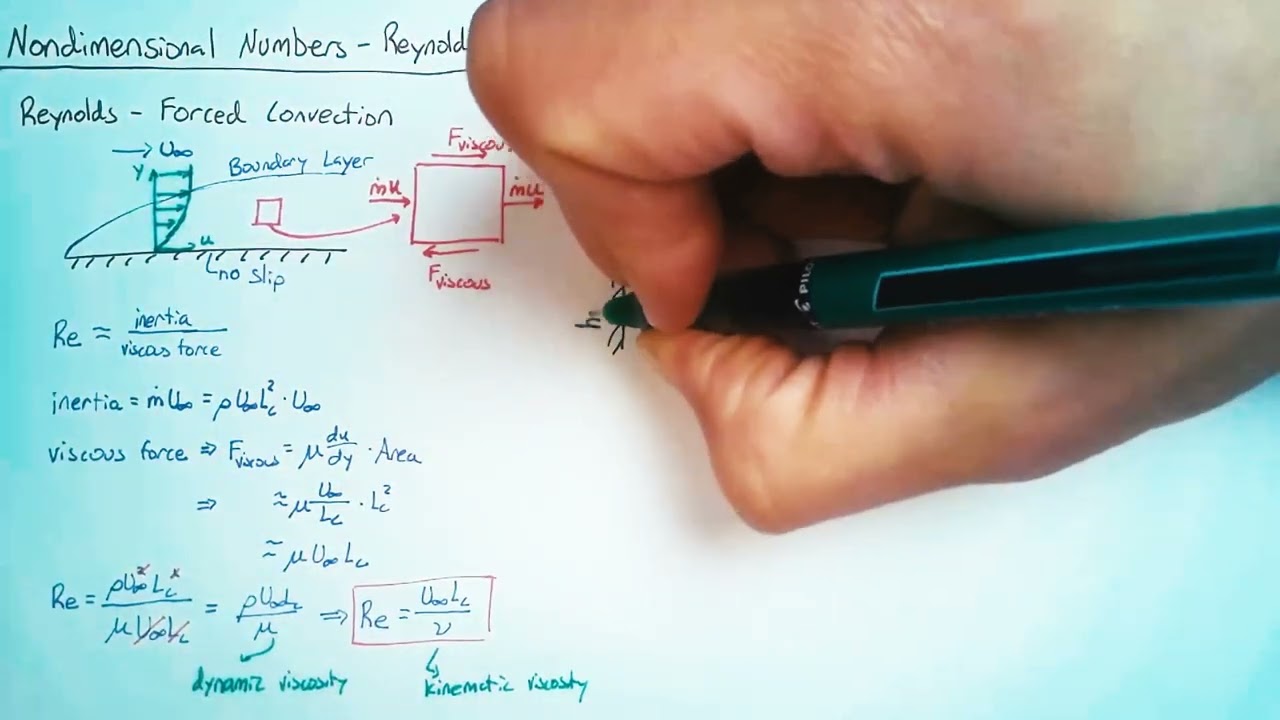 Nondimensional Numbers - Reynold
Reynolds - Forced Convection
U∞
y
Boundary Layer
u
no slip
Fviscous
ṁu
ṁu
Fviscous
Re ≈ inertia / viscous force
inertia = ṁU∞ = ρU∞Lc² · U∞
viscous force ⇒ Fviscous = μ du/dy · Area
⇒ ≈ μ U∞/Lc · Lc²
≈ μU∞Lc
Re = ρU∞²Lc² / μU∞Lc = ρU∞Lc / μ ⇒ Re = U∞Lc / ν
dynamic viscosity
kinematic viscosity
PILO